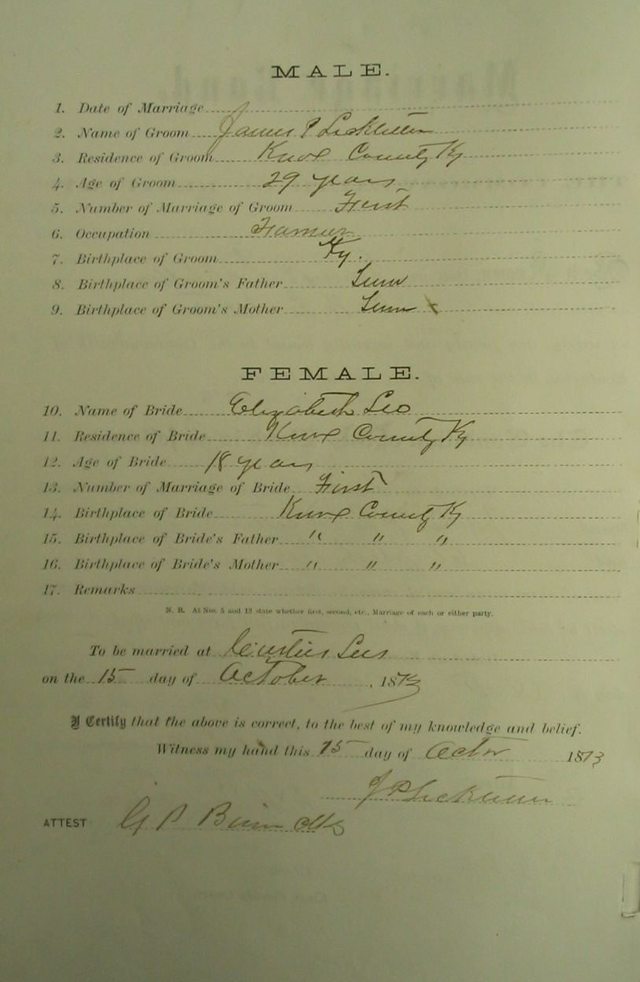 MALE.
1. Date of Marriage
2. Name of Groom James P
3. Residence of Groom Knox County Ky
4. Age of Groom 29 years
5. Number of Marriage of Groom First
6. Occupation Farmer
7. Birthplace of Groom Ky.
8. Birthplace of Groom's Father Tenn
9. Birthplace of Groom's Mother Tenn
FEMALE.
10. Name of Bride Elizabeth Lee
11. Residence of Bride Knox County Ky
12. Age of Bride 18 years
13. Number of Marriage of Bride First
14. Birthplace of Bride Knox County Ky
15. Birthplace of Bride's Father " " "
16. Birthplace of Bride's Mother " " "
17. Remarks
N. B. At Nos. 5 and 13 state whether first, second, etc., Marriage of each or either party.
To be married at Lees
on the 15 day of October , 1873
I Certify that the above is correct, to the best of my knowledge and belief.
Witness my hand this 15 day of Octor 1873
J P
ATTEST G P